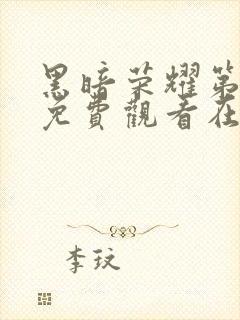 黑暗荣耀第
免費觀看在
李玟